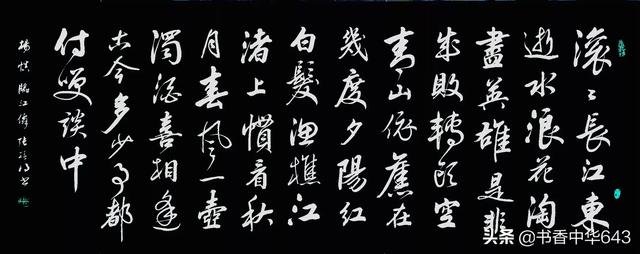 滚〻長江東
逝水浪花淘
盡英雄是非
成敗轉頭空
青山依舊在
幾度夕陽紅
白髮漁樵江
渚上慣看秋
月春風一壺
濁酒喜相逢
古今多少事都
付笑談中
楊慎臨江仙 書
头条 @书香中华643